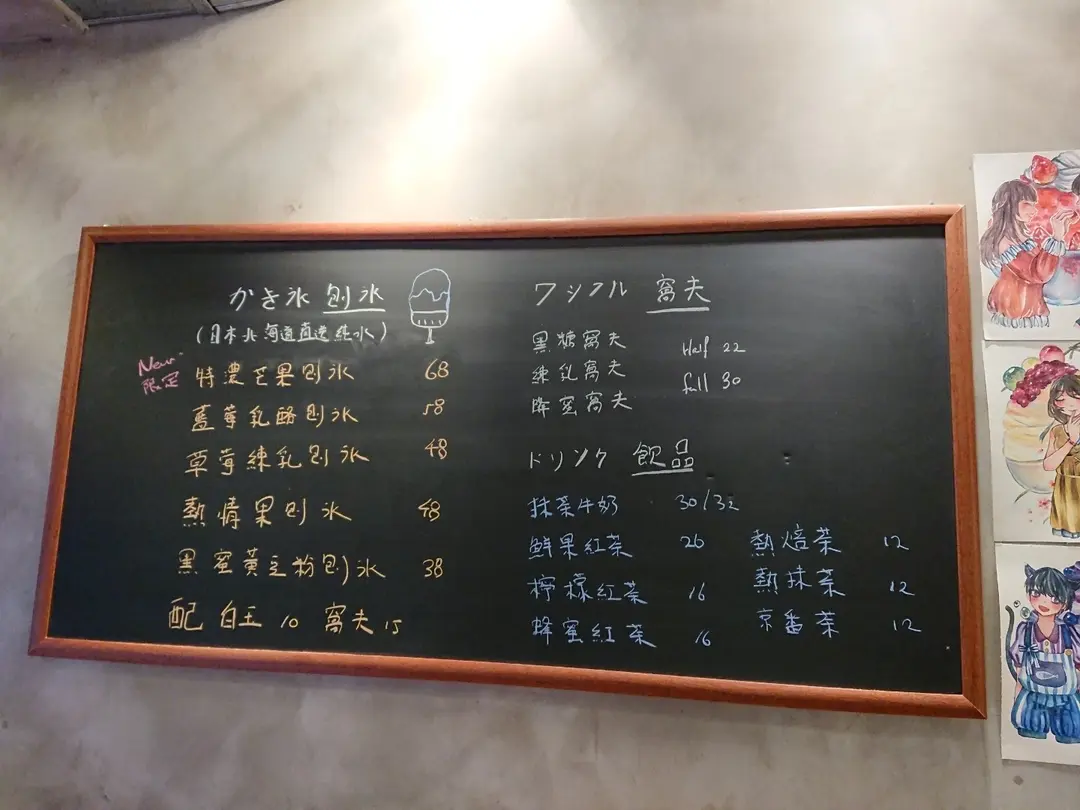 かき氷 刨氷
(日本北海道直送純水)
New
限定
特濃芒果刨氷 68
藍莓乳酪刨氷 58
草莓練乳刨氷 48
熱情果刨氷 48
黑蜜黃豆粉刨氷 38
配 白玉 10 窩夫 15
ワッフル 窩夫
黑糖窩夫
練乳窩夫
蜂蜜窩夫
Half 22
full 30
ドリンク 飲品
抹茶牛奶 30/32
鮮果紅茶 26
檸檬紅茶 16
蜂蜜紅茶 16
熱焙茶 12
熱抹茶 12
京番茶 12